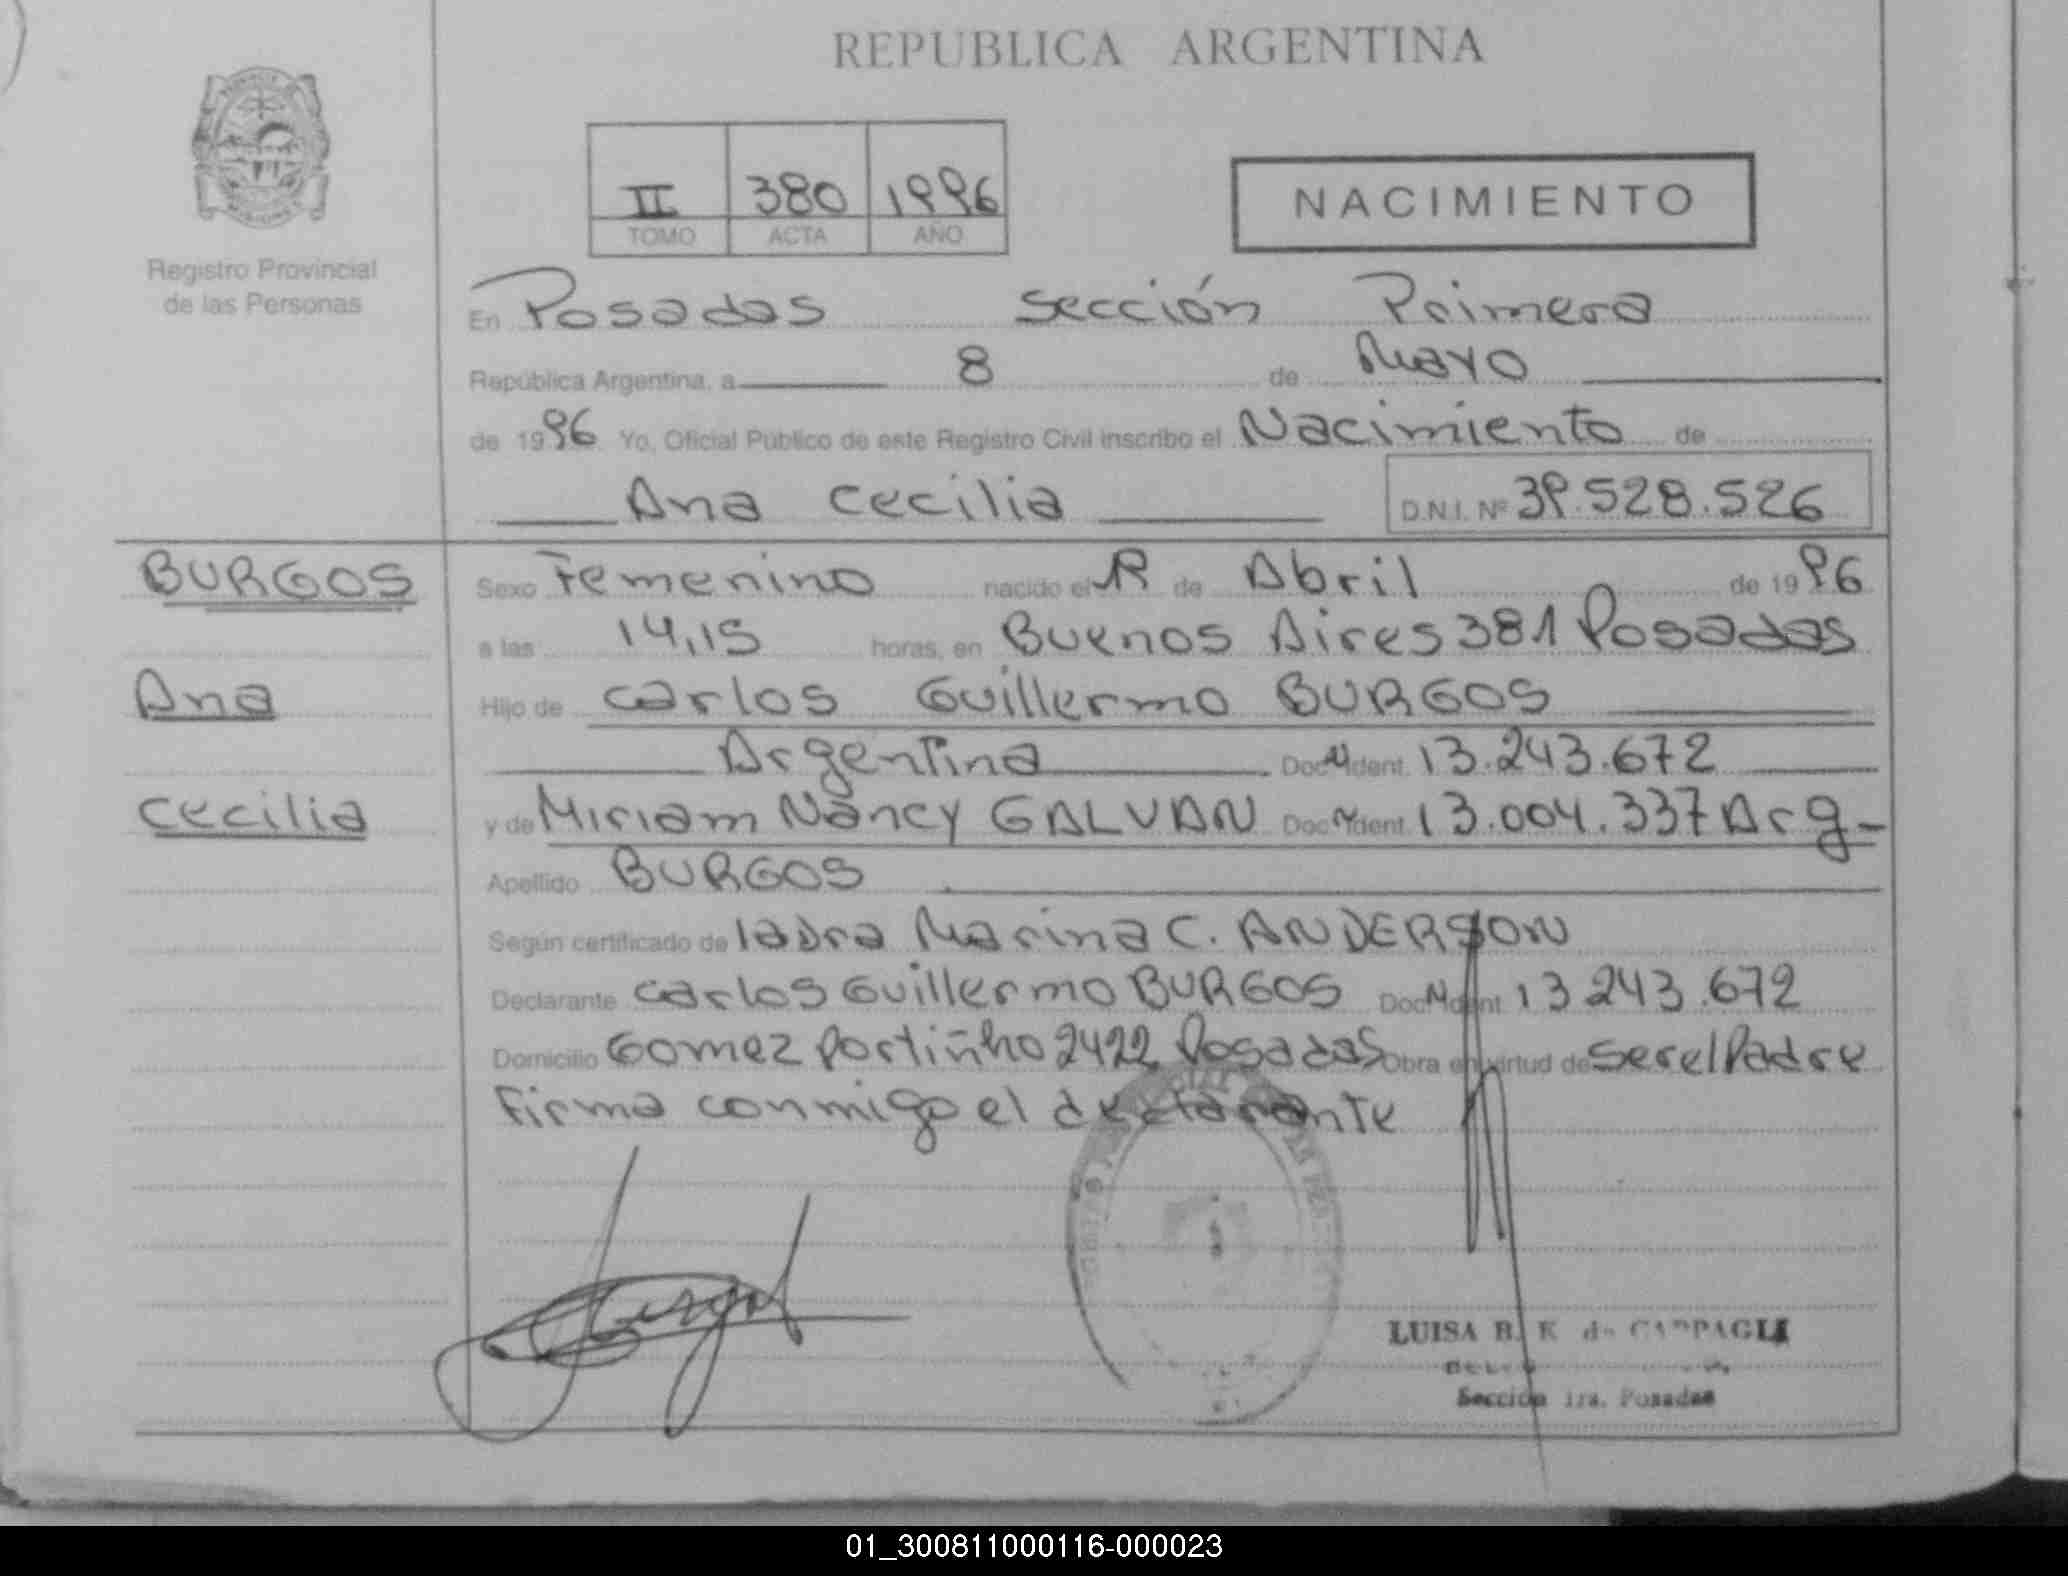 REPUBLICA ARGENTINA
Registro Provincial
de las Personas
II 380 1996
TOMO ACTA AÑO
NACIMIENTO
En Posadas Sección Primera
República Argentina, a 8 de Mayo
de 1996 Yo, Oficial Público de este Registro Civil inscribo el Nacimiento de
Ana Cecilia D.N.I. Nº 39.528.526
BURGOS
Ana
Cecilia
Sexo Femenino nacido el de Abril de 1996
a las 14,15 horas, en Buenos Aires 381 Posadas
Hijo de Carlos Guillermo BURGOS
Argentina Doc. Ident. 13.243.672
y de Miriam Nancy GALVAN Doc. Ident. 13.004.337 Arg
Apellido BURGOS
Según certificado de la Dra Marina C. ANDERSON
Declarante Carlos Guillermo BURGOS Doc. Ident 13 243.672
Domicilio Gomez Portiñho 2422 Posadas Obra en virtud de ser el Padre
Firma conmigo el declarante
LUISA B. K de
Sección 1ra. Posadas
01_300811000116-000023